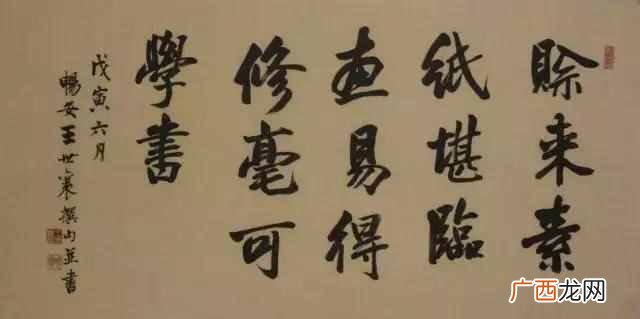 賒来素
紙堪臨
画易得
修毫可
學書
戊寅六月
暢安王世襄撰句並書
广西龙网